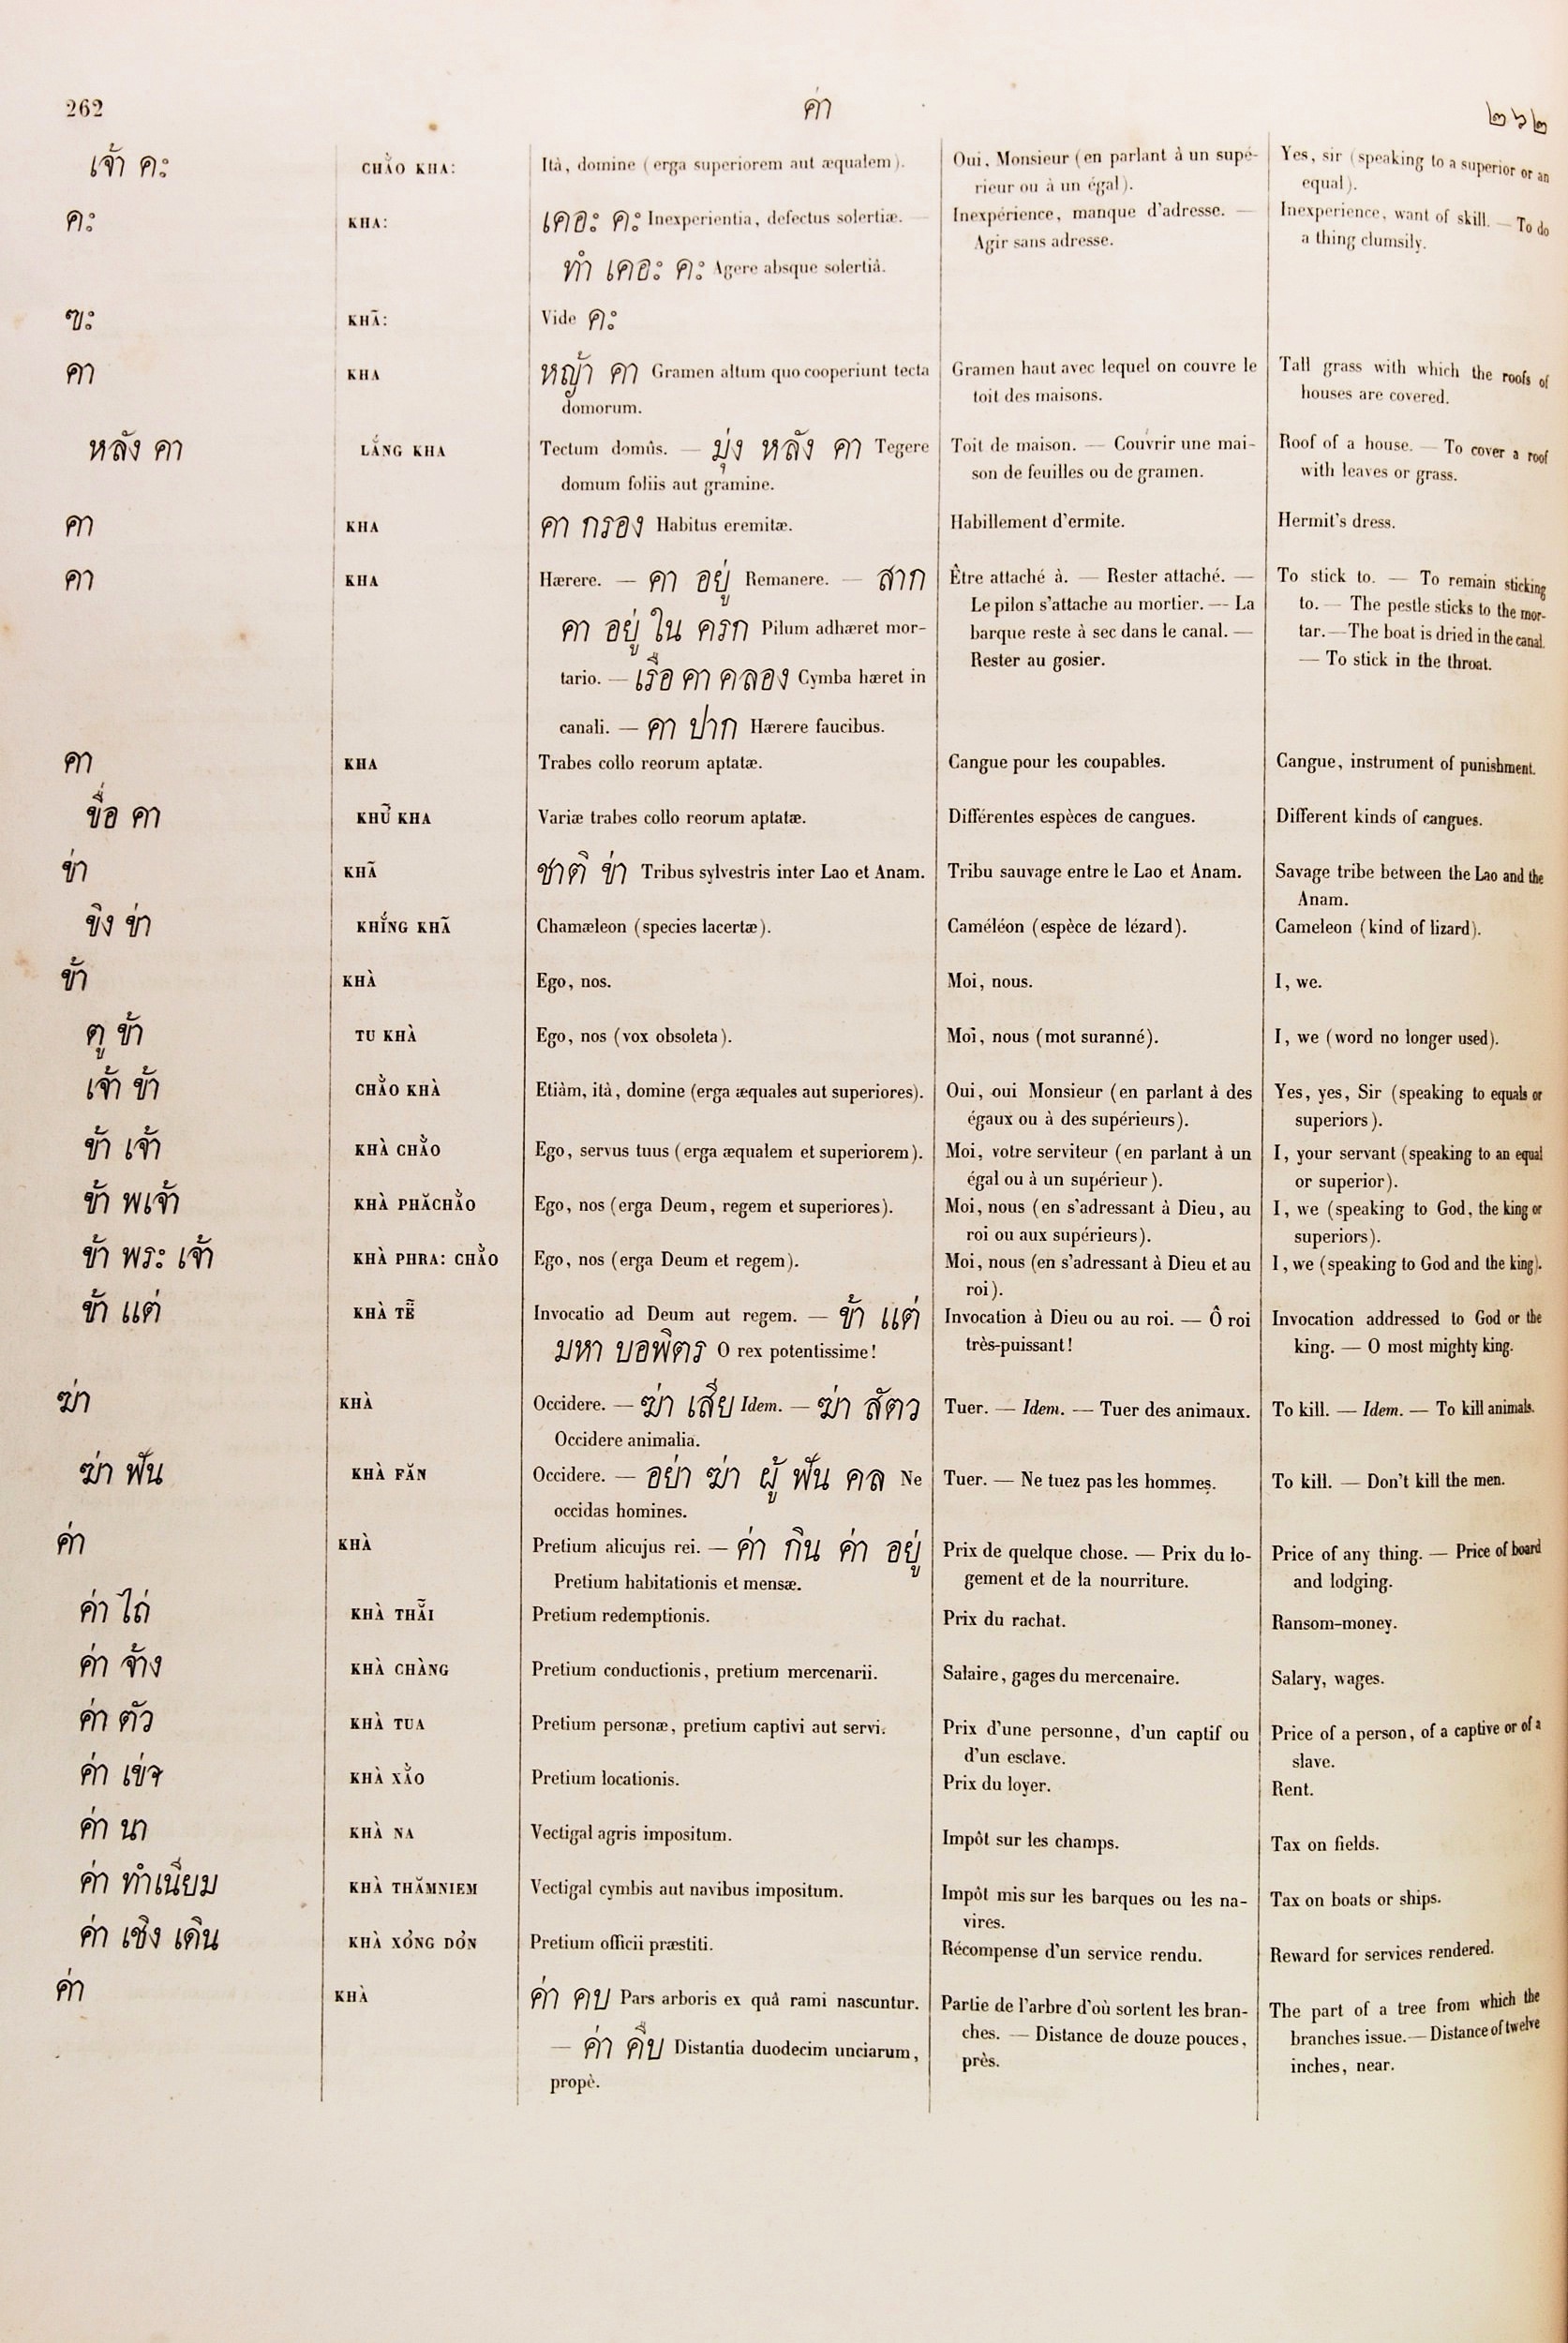 262 ค่า ๒๖๒
เจ้า คะ CHÀO KHA: Ità, domine (erga superiorem aut æqualem). Oui, Monsieur (en parlant à un supé- Yes, sir (speaking to a superior or an
rieur ou à un égal). equal).
คะ KHA: เคอะ คะ Inexperientia, defectus solertiæ. — Inexpérience, manque d'adresse. — Inexperience, want of skill. — To do
ทำ เคอะ คะ Agere absque solertiâ. Agir sans adresse. a thing clumsily.
ฃะ KHÃ: Vide คะ
คา KHA หญ้า คา Gramen altum quo cooperiunt tecta Gramen haut avec lequel on couvre le Tall grass with which the roofs of
domorum. toit des maisons. houses are covered.
หลัง คา LẮNG KHA Tectum domûs. — มุ่ง หลัง คา Tegere Toit de maison. — Couvrir une mai- Roof of a house. — To cover a roof
domum foliis aut gramine. son de feuilles ou de gramen. with leaves or grass.
คา KHA คา กรอง Habitus eremitæ. Habillement d'ermite. Hermit's dress.
คา KHA Hærere. — คา อยู่ Remanere. — สาก Être attaché à. — Rester attaché. — To stick to. — To remain sticking
คา อยู่ ใน ครก Pilum adhæret mor- Le pilon s'attache au mortier. — La to. — The pestle sticks to the mor-
tario. — เรือ คา คลอง Cymba hæret in barque reste à sec dans le canal. — tar. — The boat is dried in the canal.
canali. — คา ปาก Hærere faucibus. Rester au gosier. — To stick in the throat.
คา KHA Trabes collo reorum aptatæ. Cangue pour les coupables. Cangue, instrument of punishment.
ขื่อ คา KHŨ KHA Variæ trabes collo reorum aptatæ. Différentes espèces de cangues. Different kinds of cangues.
ข่า KHÃ ชาติ ข่า Tribus sylvestris inter Lao et Anam. Tribu sauvage entre le Lao et Anam. Savage tribe between the Lao and the
Anam.
ขิง ข่า KHÍNG KHÃ Chamæleon (species lacertæ). Caméléon (espèce de lézard). Cameleon (kind of lizard).
ข้า KHÀ Ego, nos. Moi, nous. I, we.
ตู ข้า TU KHÀ Ego, nos (vox obsoleta). Moi, nous (mot suranné). I, we (word no longer used).
เจ้า ข้า CHÀO KHÀ Etiàm, ità, domine (erga æquales aut superiores). Oui, oui Monsieur (en parlant à des Yes, yes, Sir (speaking to equals or
égaux ou à des supérieurs). superiors).
ข้า เจ้า KHÀ CHÀO Ego, servus tuus (erga æqualem et superiorem). Moi, votre serviteur (en parlant à un I, your servant (speaking to an equal
égal ou à un supérieur). or superior).
ข้า พเจ้า KHÀ PHĂCHÀO Ego, nos (erga Deum, regem et superiores). Moi, nous (en s'adressant à Dieu, au I, we (speaking to God, the king or
roi ou aux supérieurs). superiors).
ข้า พระ เจ้า KHÀ PHRA: CHÀO Ego, nos (erga Deum et regem). Moi, nous (en s'adressant à Dieu et au I, we (speaking to God and the king).
roi).
ข้า แต่ KHÀ TẼ Invocatio ad Deum aut regem. — ข้า แต่ Invocation à Dieu ou au roi. — Ô roi Invocation addressed to God or the
มหา บอพิตร O rex potentissime! très-puissant! king. — O most mighty king.
ฆ่า KHÀ Occidere. — ฆ่า เสีย Idem. — ฆ่า สัตว Tuer. — Idem. — Tuer des animaux. To kill. — Idem. — To kill animals.
Occidere animalia.
ฆ่า ฟัน KHÀ FĂN Occidere. — อย่า ฆ่า ผู้ ฟัน คล Ne Tuer. — Ne tuez pas les hommes. To kill. — Don't kill the men.
occidas homines.
ค่า KHÀ Pretium alicujus rei. — ค่า กิน ค่า อยู่ Prix de quelque chose. — Prix du lo- Price of any thing. — Price of board
Pretium habitationis et mensæ. gement et de la nourriture. and lodging.
ค่า ไถ่ KHÀ THÃI Pretium redemptionis. Prix du rachat. Ransom-money.
ค่า จ้าง KHÀ CHÀNG Pretium conductionis, pretium mercenarii. Salaire, gages du mercenaire. Salary, wages.
ค่า ตัว KHÀ TUA Pretium personæ, pretium captivi aut servi. Prix d'une personne, d'un captif ou Price of a person, of a captive or of a
d'un esclave. slave.
ค่า KHÀ XÀO Pretium locationis. Prix du loyer. Rent.
ค่า นา KHÀ NA Vectigal agris impositum. Impôt sur les champs. Tax on fields.
ค่า ทำเนียม KHÀ THĂMNIEM Vectigal cymbis aut navibus impositum. Impôt mis sur les barques ou les na- Tax on boats or ships.
vires.
ค่า เชิง เดิน KHÀ XỎNG DỎN Pretium officii præstiti. Récompense d'un service rendu. Reward for services rendered.
ค่า KHÀ ค่า คบ Pars arboris ex quâ rami nascuntur. Partie de l'arbre d'où sortent les bran- The part of a tree from which the
— ค่า คืบ Distantia duodecim unciarum, ches. — Distance de douze pouces, branches issue. — Distance of twelve
propè. près. inches, near.